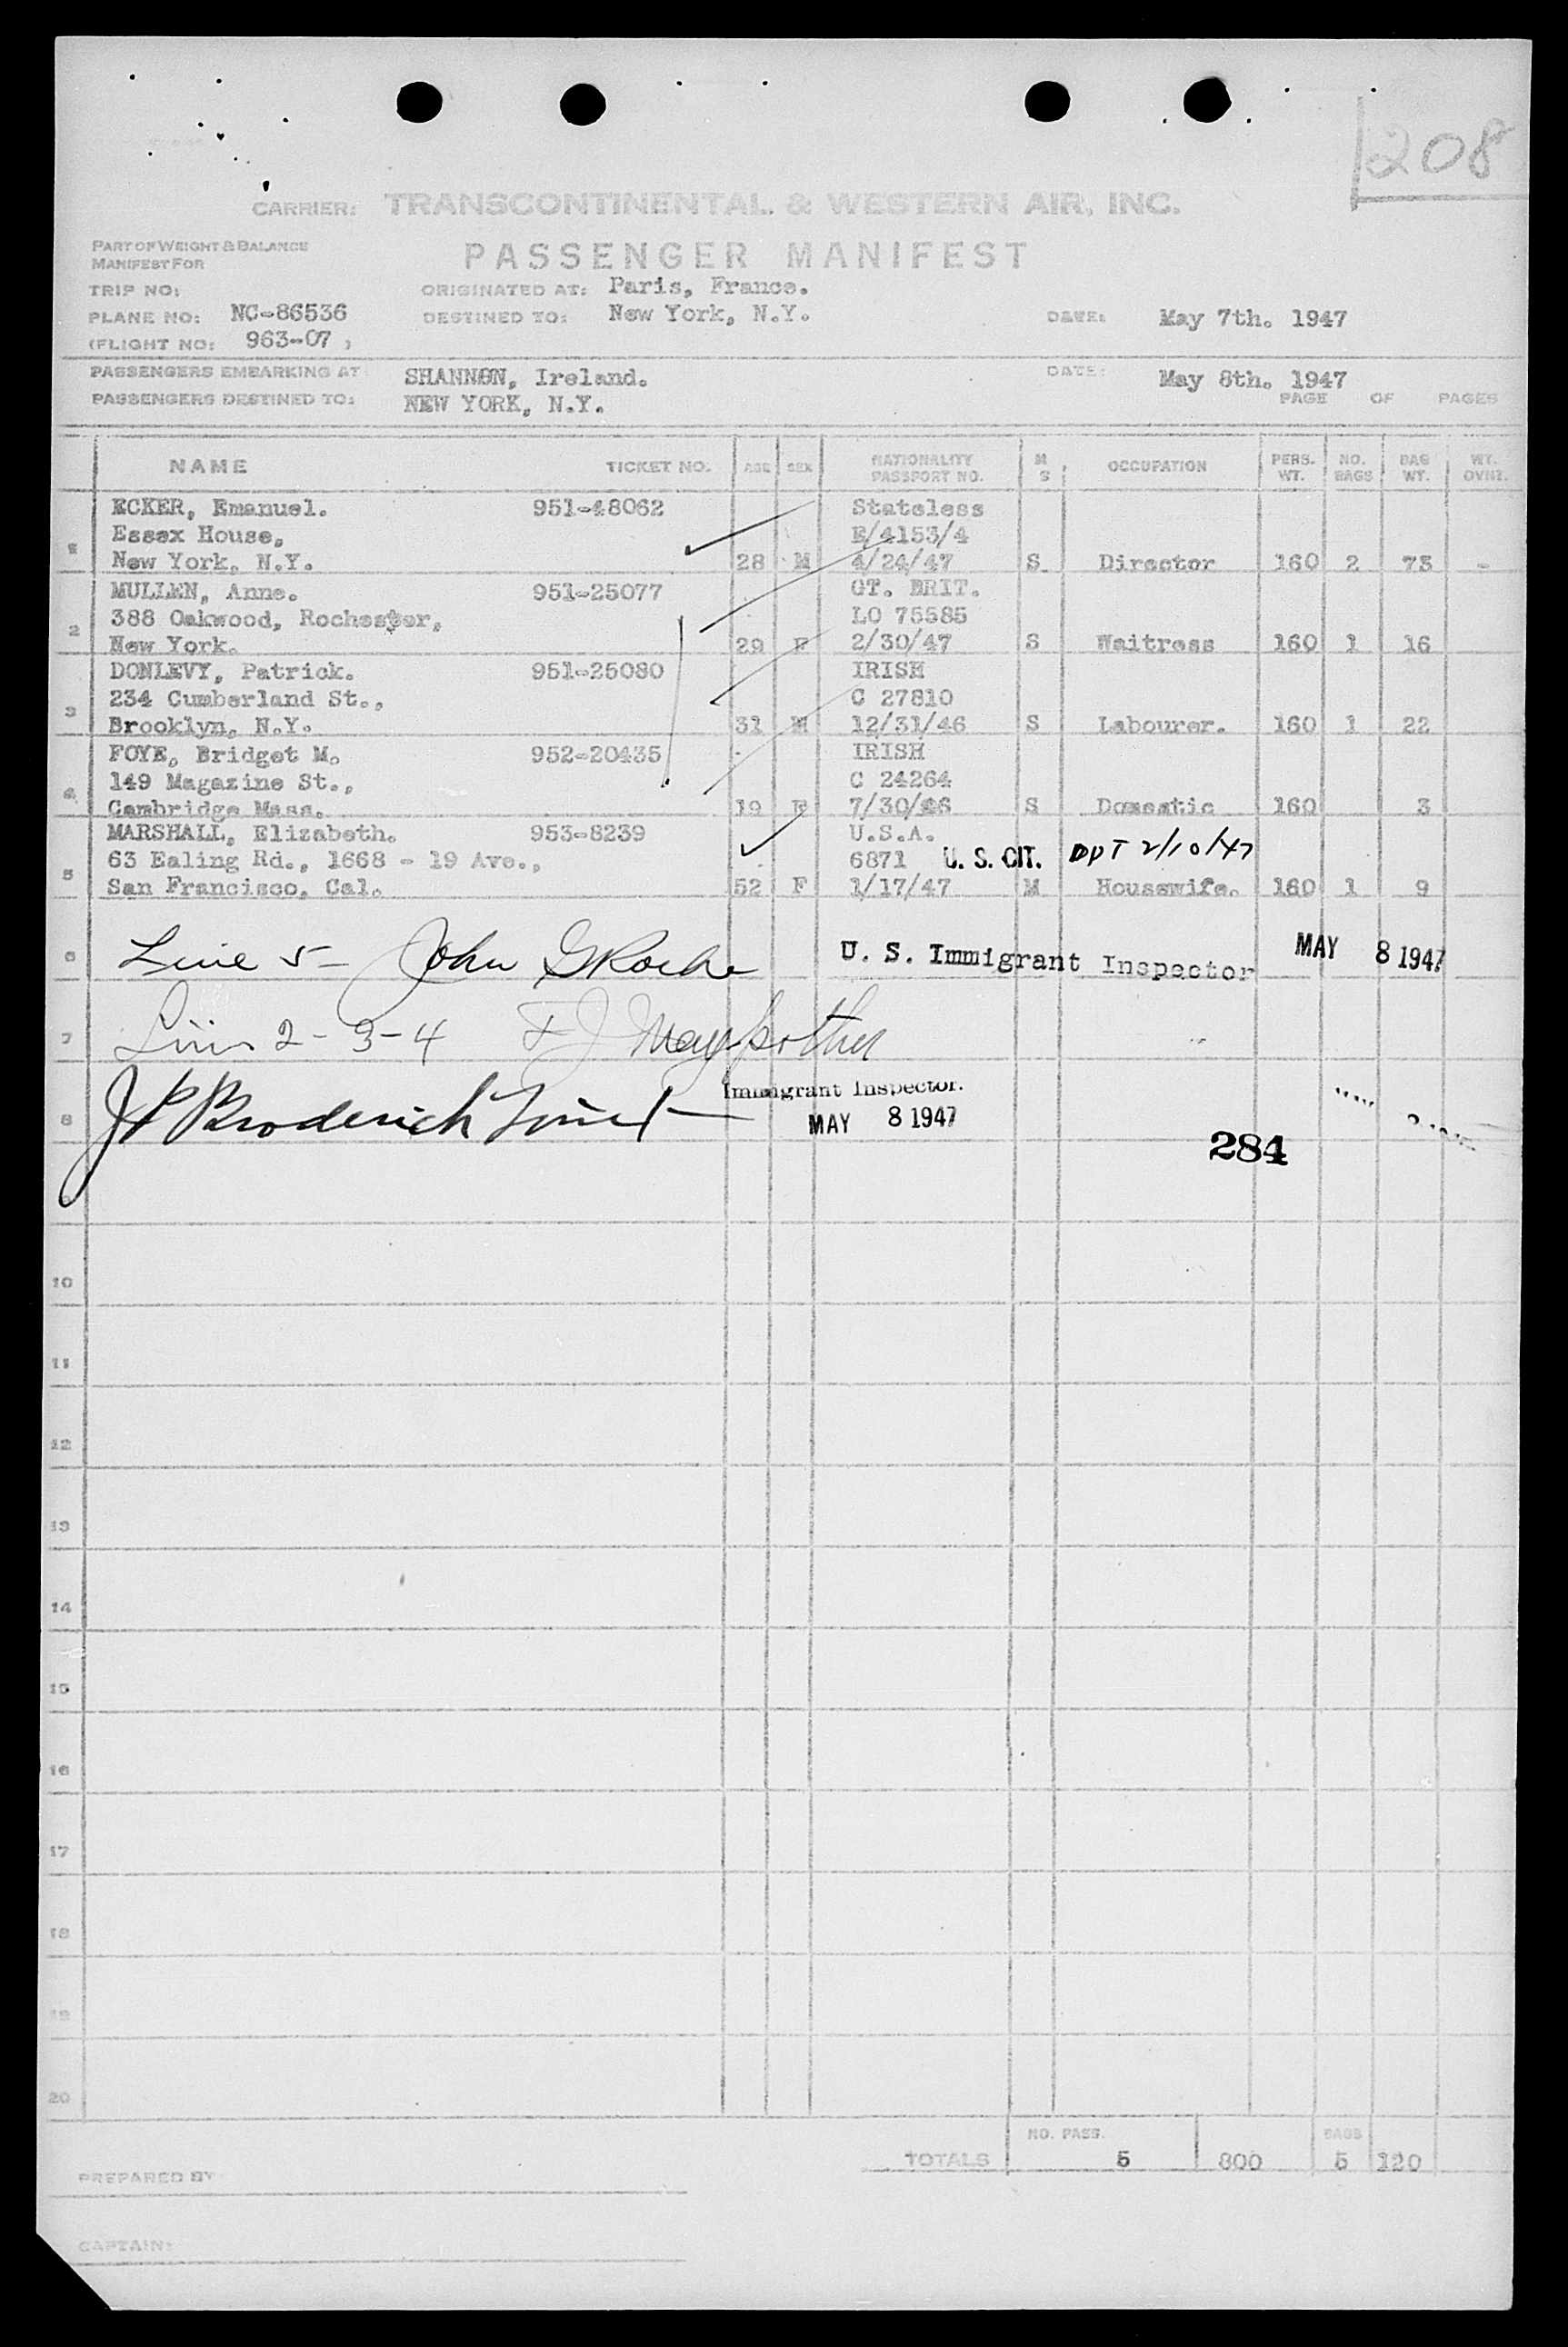 208
CARRIER: TRANSCONTINENTAL & WESTERN AIR, INC.
PART OF WEIGHT & BALANCE
MANIFEST FOR
PASSENGER MANIFEST
TRIP NO:
ORIGINATED AT: Paris, France.
PLANE NO: NC-86536
DESTINED TO: New York, N.Y.
DATE: May 7th. 1947
(FLIGHT NO: 963-07 )
PASSENGERS EMBARKING AT SHANNON, Ireland.
DATE: May 8th. 1947
PASSENGERS DESTINED TO: NEW YORK, N.Y.
PAGE OF PAGES
NAME TICKET NO. AGE SEX NATIONALITY PASSPORT NO. M S OCCUPATION PERS. WT. NO. BAGS BAG WT. WT. OVNT.
ECKER, Emanuel. 951-48062 Stateless
Essex House, E/4153/4
1 New York, N.Y. 28 M 4/24/47 S Director 160 2 73 -
MULLEN, Anne. 951-25077 GT. BRIT.
388 Oakwood, Rochester, LO 75585
2 New York. 29 F 2/30/47 S Waitress 160 1 16
DONLEVY, Patrick. 951-25080 IRISH
234 Cumberland St., C 27810
3 Brooklyn, N.Y. 31 M 12/31/46 S Labourer. 160 1 22
FOYE, Bridget M. 952-20435 IRISH
149 Magazine St., C 24264
4 Cambridge Mass. 19 F 7/30/46 S Domestic 160 3
MARSHALL, Elizabeth. 953-8239 U.S.A.
63 Ealing Rd., 1668 - 19 Ave., 6871 U. S. CIT. DPT 2/10/47
5 San Francisco, Cal. 52 F 1/17/47 M Housewife. 160 1 9
6 Line 5- John G Roche U. S. Immigrant Inspector MAY 8 1947
7 Lines 2-3-4
8 J P Broderick Line 1
Immigrant Inspector.
MAY 8 1947
284
10
11
12
13
14
15
16
17
18
19
20
NO. PASS. BAGS
TOTALS 5 800 5 120
PREPARED BY
CAPTAIN: